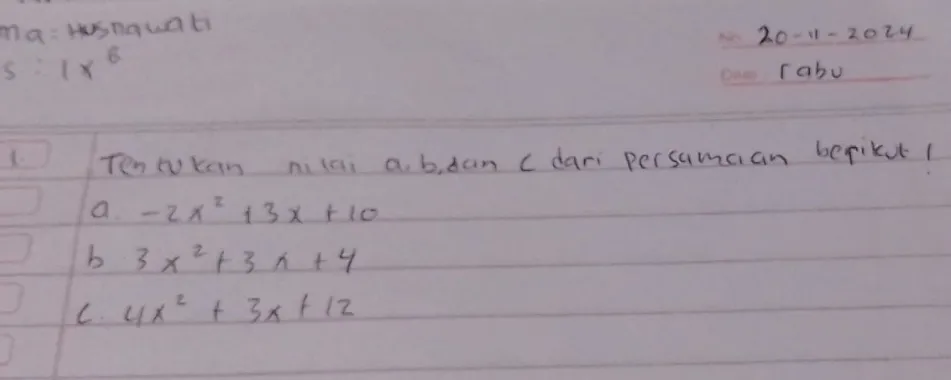 ma : Husnawati
No 20-11-2024
s : 1x⁶
Date rabu
1. Tentukan nilai a, b, dan c dari persamaan berikut !
a. -2x² + 3x + 10
b 3x² + 3x + 4
c. 4x² + 3x + 12